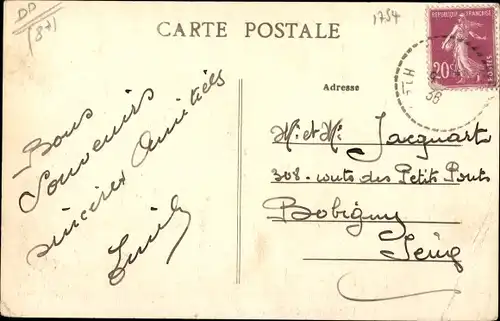 DD
(87)
CARTE POSTALE
1754
REPUBLIQUE FRANÇAISE
20c
POSTES
36
Adresse
Bons
Souvenirs
sincères Amitiés
M. et Me Jacquart
308. routs des Petits Ponts
Bobigny
Seine